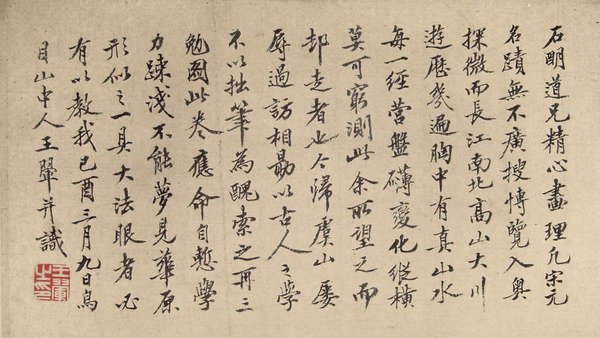 石明道兄精心畫理凡宋元
名蹟無不廣搜博覽入奧
探微而長江南北高山大川
遊歷幾遍胸中有真山水
每一經營盤礴變化縱橫
莫可窮測此余所望之而
却走者也今歸虞山屢
辱過訪相勗以古人之學
不以拙筆為醜索之再三
勉圖此卷應命自慙學
力疎淺不能夢見華原
形似之一具大法眼者必
有以教我己酉三月九日烏
目山中人王翬并識
王翬之印